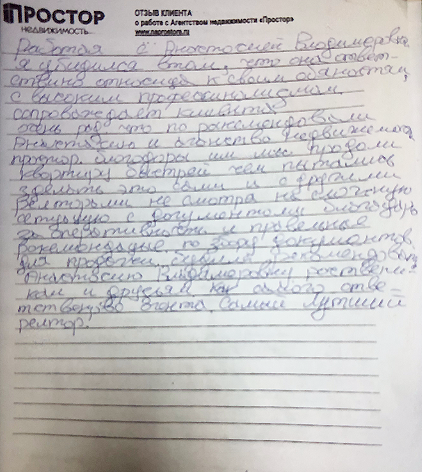 ПРОСТОР
НЕДВИЖИМОСТЬ
ОТЗЫВ КЛИЕНТА
о работе с Агентством недвижимости «Простор»
www.naprostore.ru
Работая с Анастасией Владимировной
я убедился в том, что она ответ-
ственно относица к своим обязаностям,
с высоким професионализмом
сопровождает клиента
очень рад что порекомендовали
Анастасию и агенство недвижемости
простор благодоря им мы продали
квартиру быстрей чем пытались
зделать это сами и с другими
Релторами не смотря на сложную
сетуацию с документами благодарю
за оперативность и правельные
рекомендацие по збору документов
для продажи. рекомендовать
Анастасию Владимировну родствени-
кам и друзьям как самого отве-
тственого агента. Самый лутший
релтор.